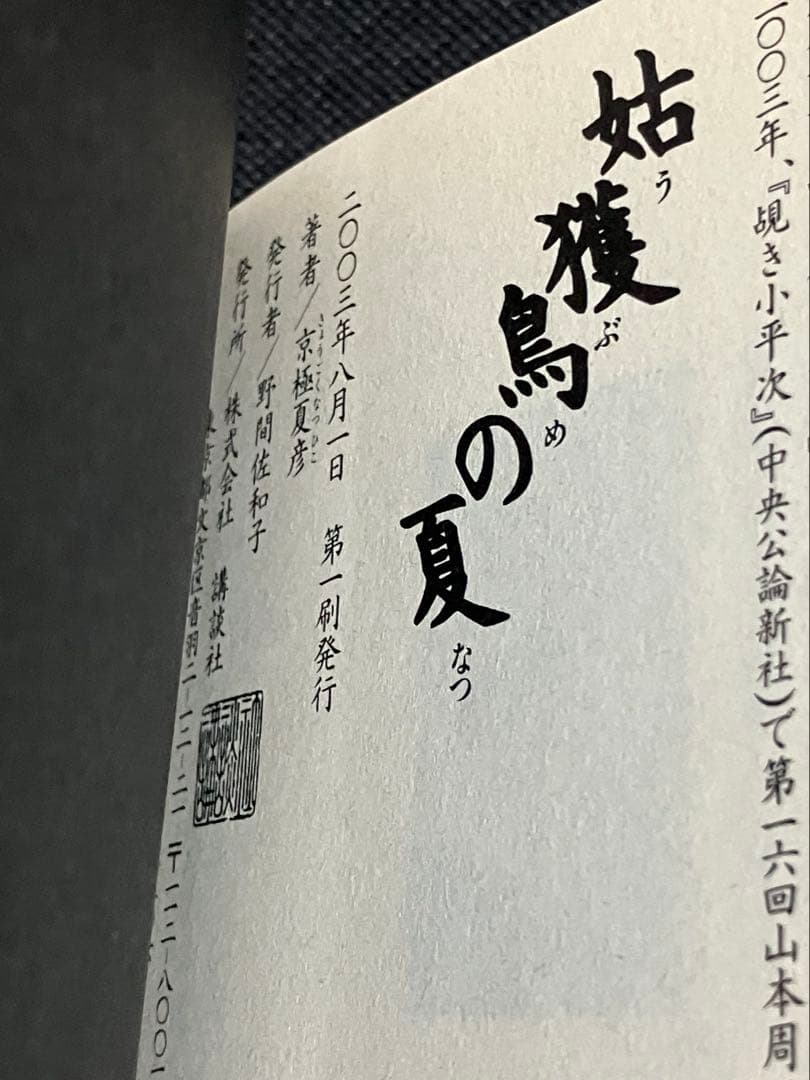 〇〇三年、『覘き小平次』(中央公論新社)で第一六回山本周
姑獲鳥の夏
うぶめ
なつ
二〇〇三年八月一日 第一刷発行
著者/京極夏彦
きょうごくなつひこ
発行者/野間佐和子
発行所/株式会社 講談社
東京都文京区音羽二-一二-二一 〒一一二-八〇〇一